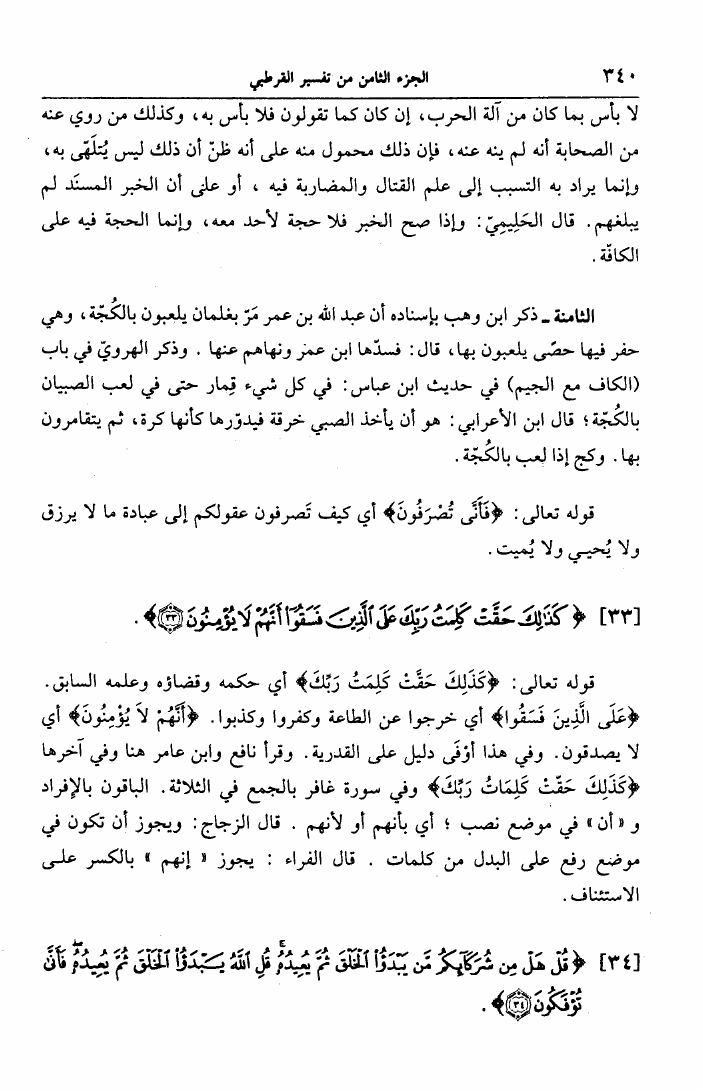 ٣٤٠ الجزء الثامن من تفسير القرطبي
لا بأس بما كان من آلة الحرب، إن كان كما تقولون فلا بأس به، وكذلك من روي عنه
من الصحابة أنه لم ينه عنه، فإن ذلك محمول منه على أنه ظنّ أن ذلك ليس يُتلَهّى به،
وإنما يراد به التسبب إلى علم القتال والمضاربة فيه ، أو على أن الخبر المسنَد لم
يبلغهم. قال الحَلِيمِيّ: وإذا صح الخبر فلا حجة لأحد معه، وإنما الحجة فيه على
الكافّة.
الثامنة ـ ذكر ابن وهب بإسناده أن عبد الله بن عمر مَرّ بغلمان يلعبون بالكُجّة، وهي
حفر فيها حصًى يلعبون بها، قال: فسدّها ابن عمر ونهاهم عنها . وذكر الهرويّ في باب
(الكاف مع الجيم) في حديث ابن عباس: في كل شيء قِمار حتى في لعب الصبيان
بالكُجّة؛ قال ابن الأعرابي: هو أن يأخذ الصبي خرقة فيدوّرها كأنها كرة، ثم يتقامرون
بها. وكج إذا لعب بالكُجّة.
قوله تعالى: ﴿فَأَنَّى تُصْرَفُونَ﴾ أي كيف تَصرفون عقولكم إلى عبادة ما لا يرزق
ولا يُحيـي ولا يُميت.
[٣٣] ﴿كَذَٰلِكَ حَقَّتْ كَلِمَتُ رَبِّكَ عَلَى ٱلَّذِينَ فَسَقُوٓا۟ أَنَّهُمْ لَا يُؤْمِنُونَ ٣٣﴾.
قوله تعالى: ﴿كَذَلِكَ حَقَّتْ كَلِمَتُ رَبِّكَ﴾ أي حكمه وقضاؤه وعلمه السابق.
﴿عَلَى الَّذِينَ فَسَقُوا﴾ أي خرجوا عن الطاعة وكفروا وكذبوا. ﴿أَنَّهُمْ لاَ يُؤْمِنُونَ﴾ أي
لا يصدقون. وفي هذا أوْفَى دليل على القدرية. وقرأ نافع وابن عامر هنا وفي آخرها
﴿كَذَلِكَ حَقّتْ كَلِمَاتُ رَبِّكَ﴾ وفي سورة غافر بالجمع في الثلاثة. الباقون بالإفراد
و «أن» في موضع نصب ؛ أي بأنهم أو لأنهم . قال الزجاج: ويجوز أن تكون في
موضع رفع على البدل من كلمات . قال الفراء : يجوز « إنهم » بالكسر علـى
الاستئناف.
[٣٤] ﴿قُلْ هَلْ مِن شُرَكَآئِكُم مَّن يَبْدَؤُا۟ ٱلْخَلْقَ ثُمَّ يُعِيدُهُۥ ۚ قُلِ ٱللَّهُ يَبْدَؤُا۟ ٱلْخَلْقَ ثُمَّ يُعِيدُهُۥ ۖ فَأَنَّىٰ
تُؤْفَكُونَ ٣٤﴾.